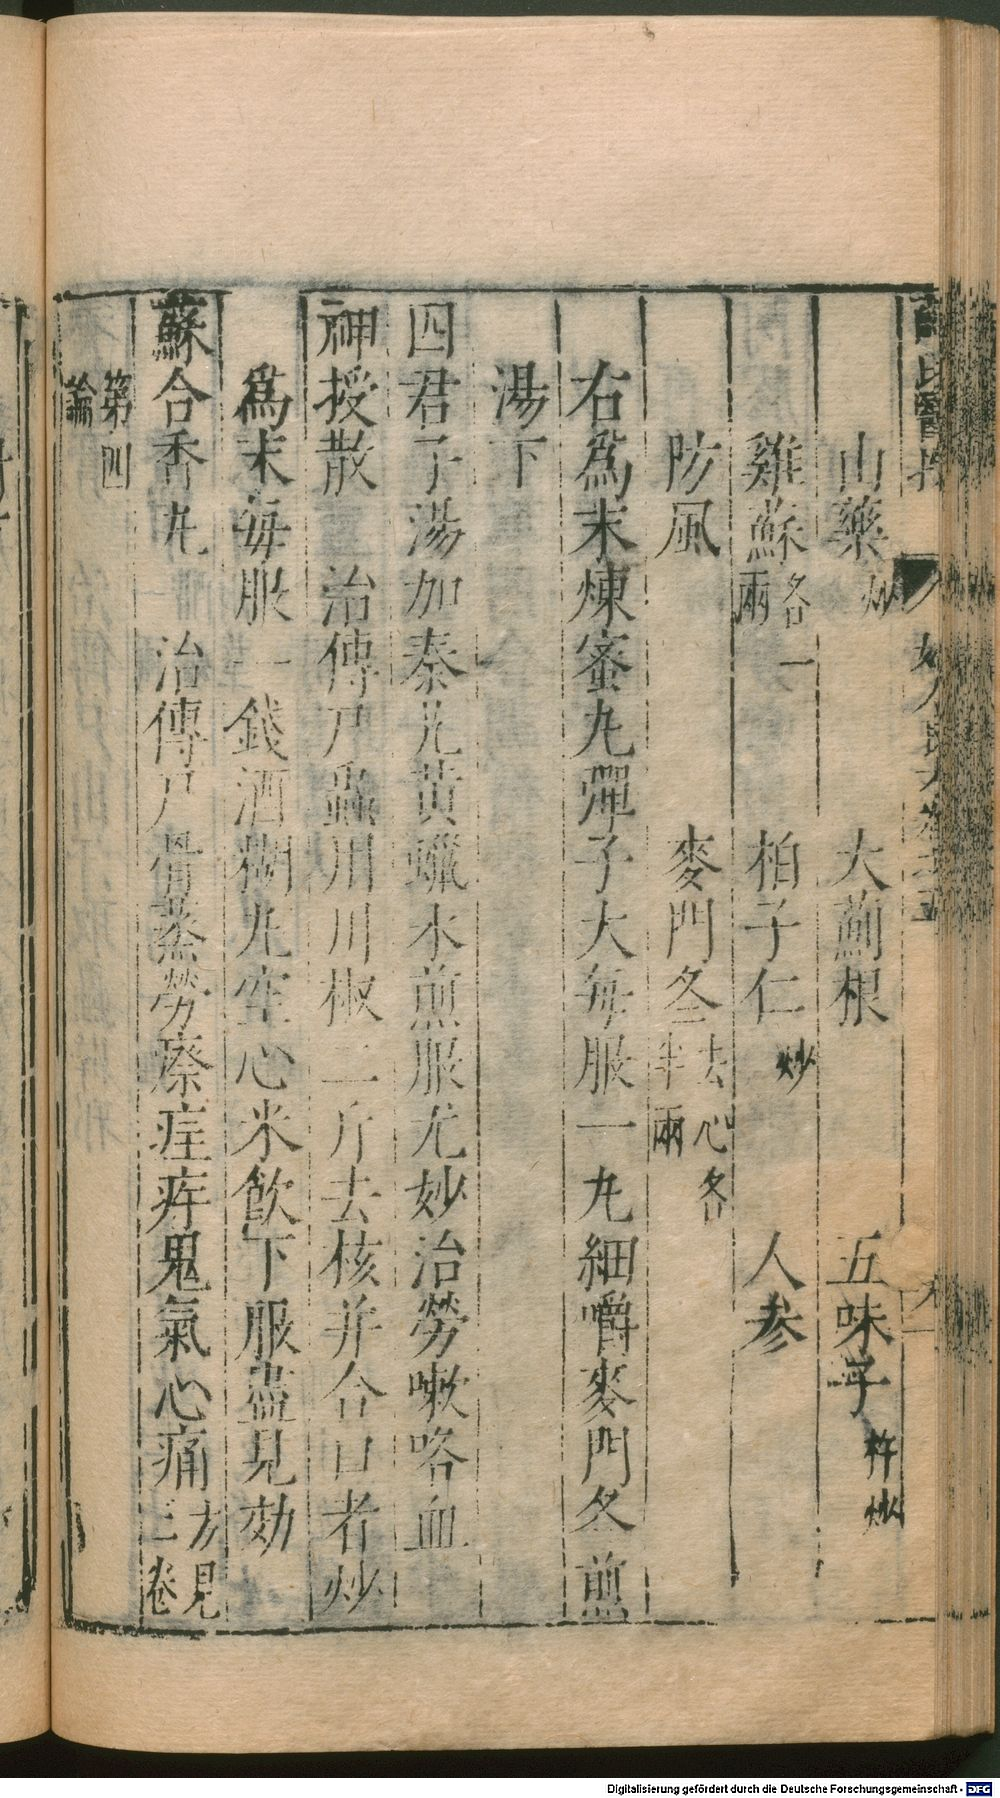 山藥炒 大薊根 五味子杵炒
雞蘇各一兩 柏子仁炒 人參
防風 麥門冬去心各半兩
右爲末煉蜜丸彈子大每服一丸細嚼麥門冬煎
湯下
四君子湯加秦艽黃蠟水煎服尤妙治勞嗽咯血
神授散 治傳尸蟲用川椒二斤去核并合口者炒
爲末每服一錢酒糊丸空心米飲下服盡見効
蘇合香丸 治傳尸骨蒸勞瘵疰疾鬼氣心痛方見三卷
第四論
Digitalisierung gefördert durch die Deutsche Forschungsgemeinschaft - DFG